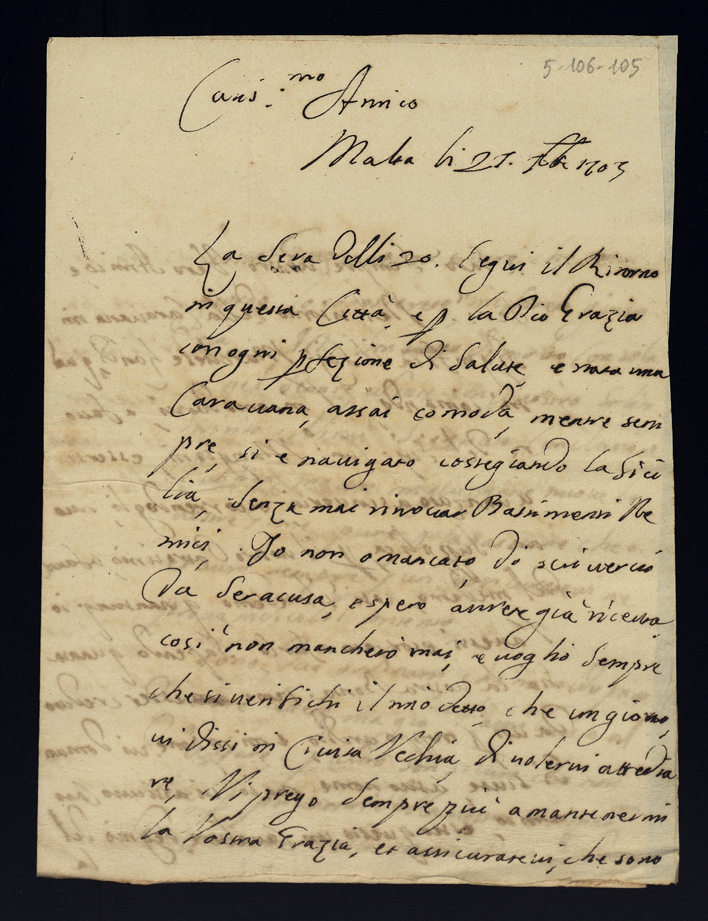 5-106-105
Caris.mo Amico
Malta li 21. 7bre 1705
La sera delli 20. seguì il Ritorno
in questa Città, e p. la Dio Grazia
con ogni pfezione di Salute e stata una
Carauana, assai comoda, mentre sem
pre, si e nauigato costegiando la Sici
lia, senza mai rinvociar Bastimenti Ne
mici, Io non o mancato di scriuerui
da Seracusa, e spero aurere già riceuta
così non mancherò mai, e uoglio sempre
che si uerifichi il mio detto, che un giorno,
ui dissi in Ciuita Vechia, di uolerui attedia
re, Vi prego sempre più a mantenermi
la Vostra Grazia, et assicurateui, che sono